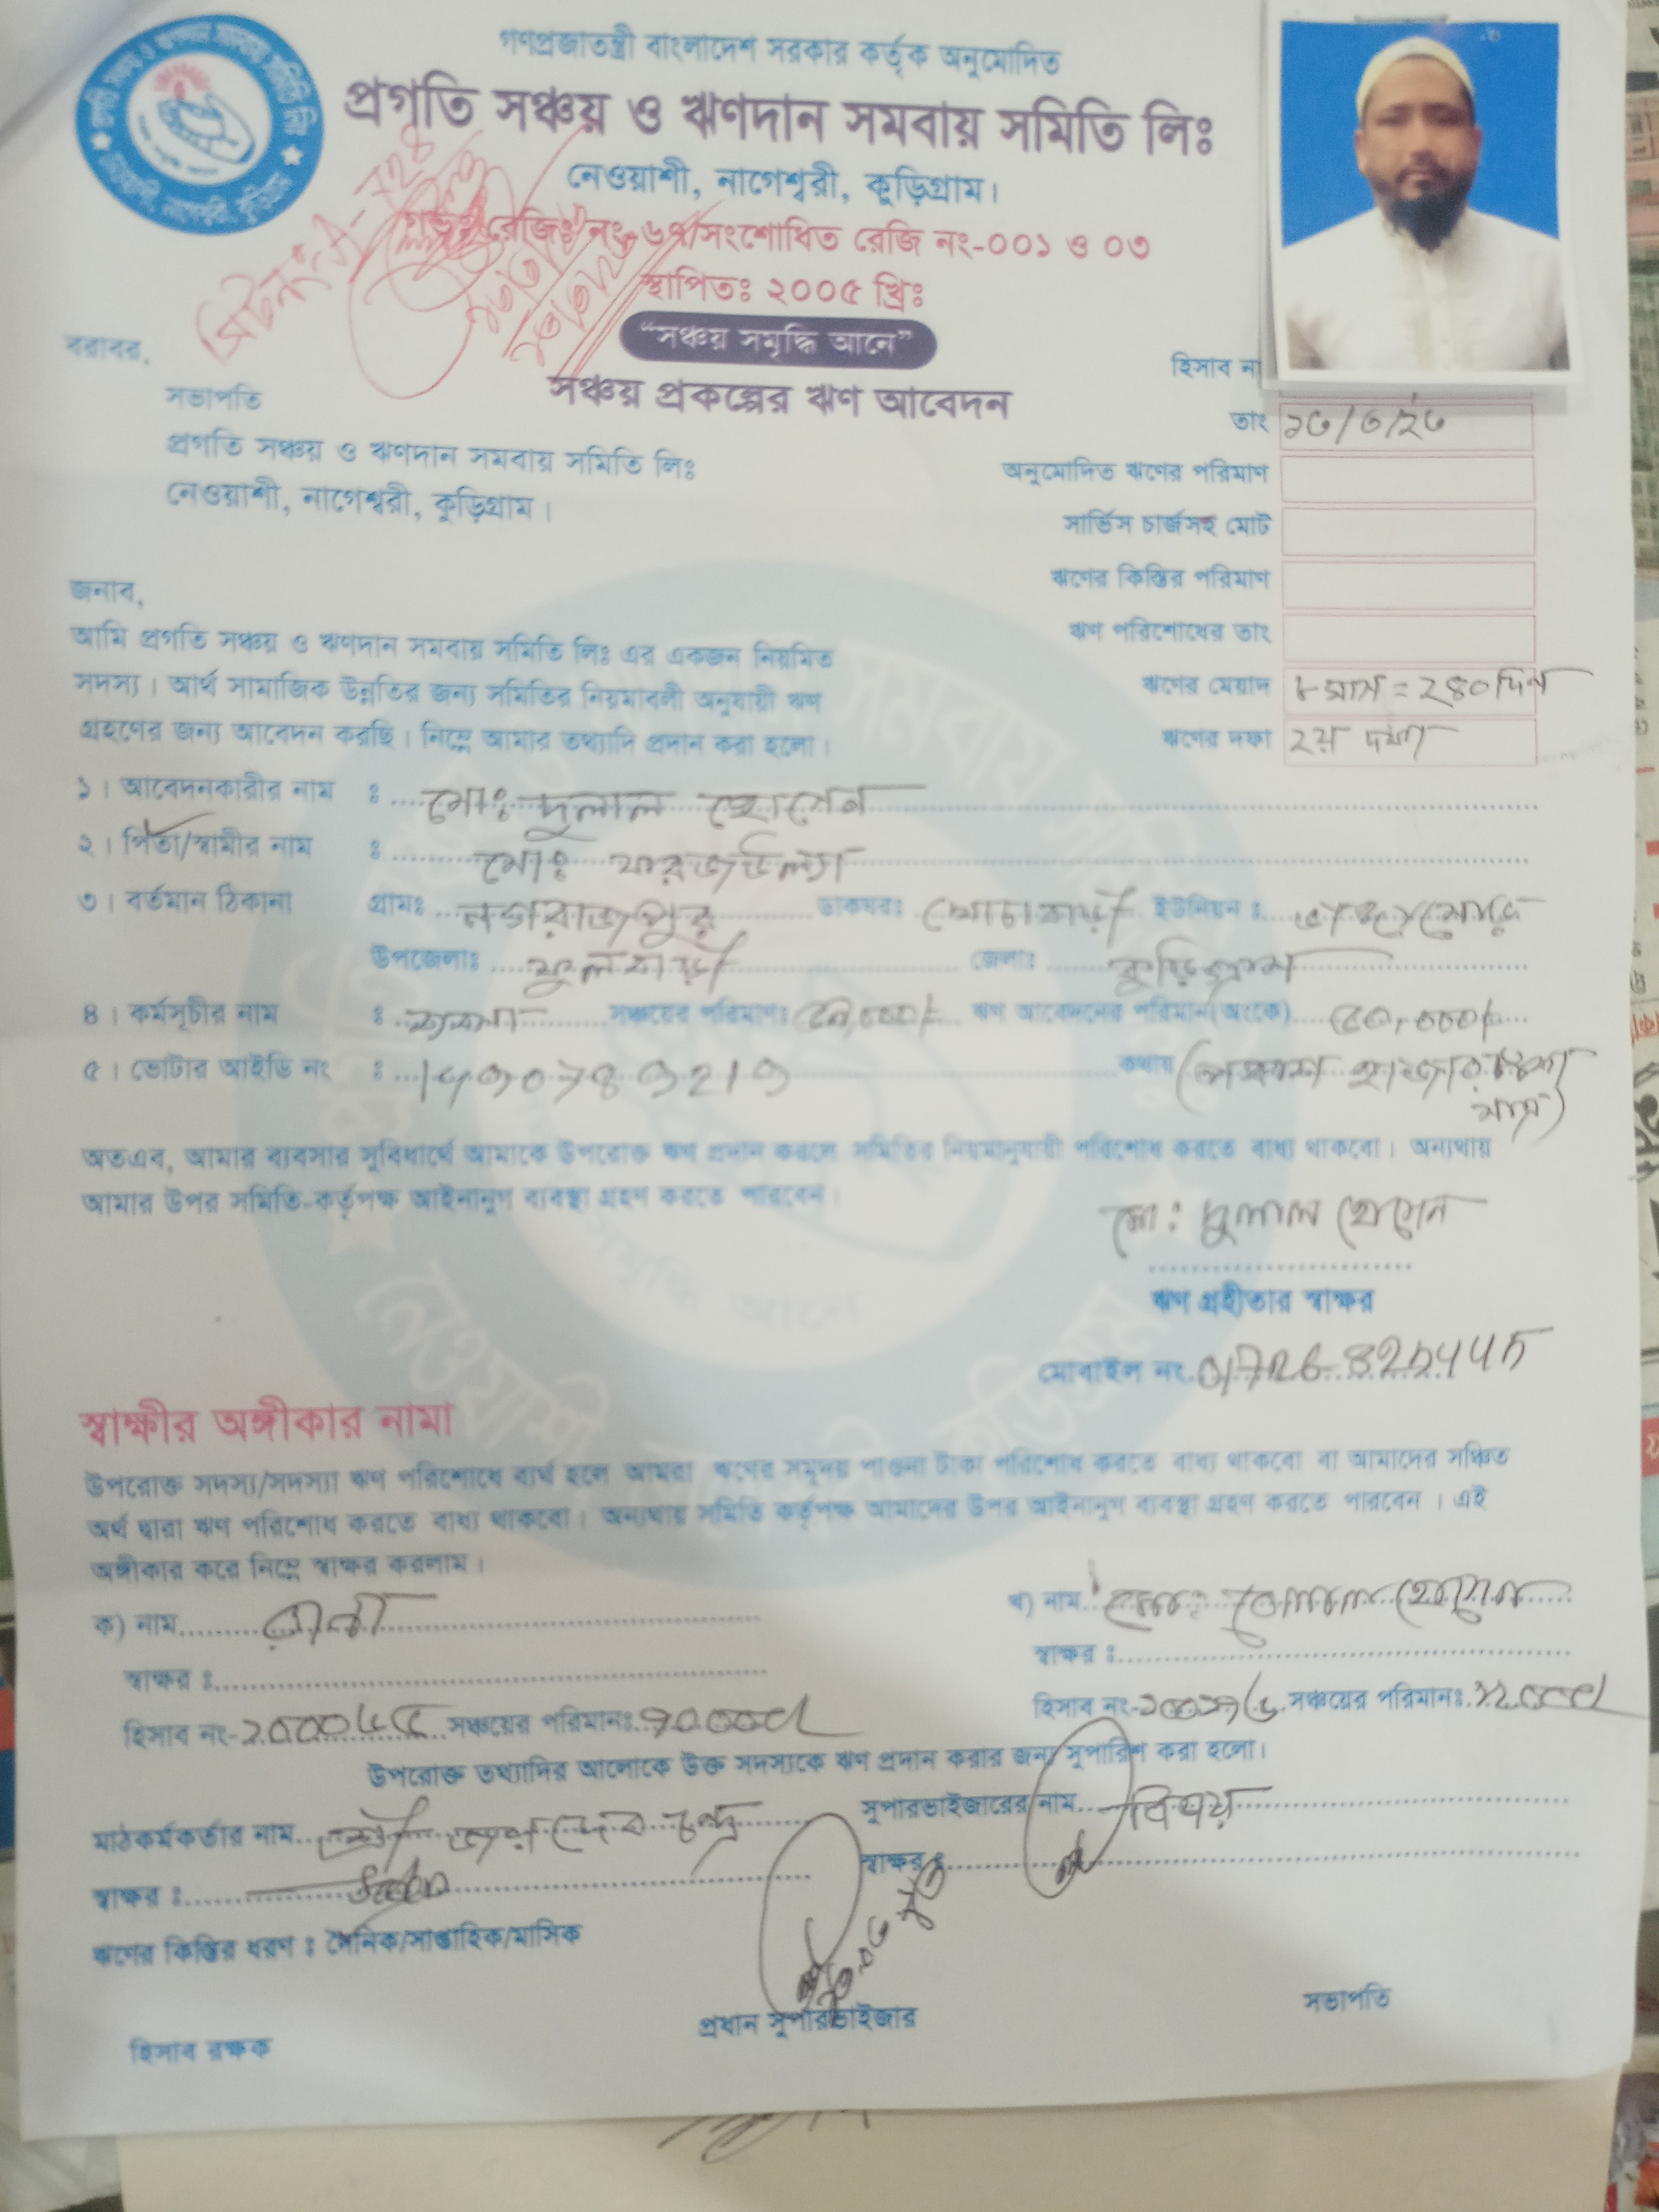 গণপ্রজাতন্ত্রী বাংলাদেশ সরকার কর্তৃক অনুমোদিত
প্রগতি সঞ্চয় ও ঋণদান সমবায় সমিতি লিঃ
নেওয়াশী, নাগেশ্বরী, কুড়িগ্রাম।
রেজিঃ নং-৬৭/সংশোধিত রেজি নং-০০১ ও ০৩
স্থাপিতঃ ২০০৫ খ্রিঃ
“সঞ্চয় সমৃদ্ধি আনে”
সঞ্চয় প্রকল্পের ঋণ আবেদন
বরাবর,
সভাপতি
প্রগতি সঞ্চয় ও ঋণদান সমবায় সমিতি লিঃ
নেওয়াশী, নাগেশ্বরী, কুড়িগ্রাম।
হিসাব না
তাং ১৩/৩/২৩
অনুমোদিত ঋণের পরিমাণ
সার্ভিস চার্জসহ মোট
ঋণের কিস্তির পরিমাণ
ঋণ পরিশোধের তাং
ঋণের মেয়াদ ৮ মাস = ২৪০ দিন
ঋণের দফা ২য় দফা
জনাব,
আমি প্রগতি সঞ্চয় ও ঋণদান সমবায় সমিতি লিঃ এর একজন নিয়মিত
সদস্য। আর্থ সামাজিক উন্নতির জন্য সমিতির নিয়মাবলী অনুযায়ী ঋণ
গ্রহণের জন্য আবেদন করছি। নিম্নে আমার তথ্যাদি প্রদান করা হলো।
১। আবেদনকারীর নাম : মোঃ দুলাল হোসেন
২। পিতা/স্বামীর নাম : মোঃ
৩। বর্তমান ঠিকানা গ্রামঃ নগরাজপুর ডাকঘরঃ ইউনিয়ন : ভাঙ্গামোড়
উপজেলাঃ ফুলবাড়ী জেলাঃ কুড়িগ্রাম
৪। কর্মসূচীর নাম : ব্যবসা সঞ্চয়ের পরিমাণঃ ঋণ আবেদনের পরিমান(অংকে) ৫০,০০০/=
৫। ভোটার আইডি নং : কথায় (পঞ্চাশ হাজার টাকা
মাত্র)
অতএব, আমার ব্যবসার সুবিধার্থে আমাকে উপরোক্ত ঋণ প্রদান করলে সমিতির নিয়মানুযায়ী পরিশোধ করতে বাধ্য থাকবো। অন্যথায়
আমার উপর সমিতি-কর্তৃপক্ষ আইনানুগ ব্যবস্থা গ্রহণ করতে পারবেন।
মো: দুলাল হোসেন
ঋণ গ্রহীতার স্বাক্ষর
মোবাইল নং
স্বাক্ষীর অঙ্গীকার নামা
উপরোক্ত সদস্য/সদস্যা ঋণ পরিশোধে ব্যর্থ হলে আমরা ঋণের সমুদয় পাওনা টাকা পরিশোধ করতে বাধ্য থাকবো বা আমাদের সঞ্চিত
অর্থ দ্বারা ঋণ পরিশোধ করতে বাধ্য থাকবো। অন্যথায় সমিতি কর্তৃপক্ষ আমাদের উপর আইনানুগ ব্যবস্থা গ্রহণ করতে পারবেন । এই
অঙ্গীকার করে নিম্নে স্বাক্ষর করলাম।
ক) নাম
খ) নাম
স্বাক্ষর :
স্বাক্ষর :
হিসাব নং- সঞ্চয়ের পরিমানঃ
হিসাব নং- সঞ্চয়ের পরিমানঃ
উপরোক্ত তথ্যাদির আলোকে উক্ত সদস্যকে ঋণ প্রদান করার জন্য সুপারিশ করা হলো।
মাঠকর্মকর্তার নাম শ্রী জয়দেব চন্দ্র
সুপারভাইজারের নাম
স্বাক্ষর :
স্বাক্ষর :
ঋণের কিস্তির ধরণ : দৈনিক/সাপ্তাহিক/মাসিক
হিসাব রক্ষক
প্রধান সুপারভাইজার
সভাপতি